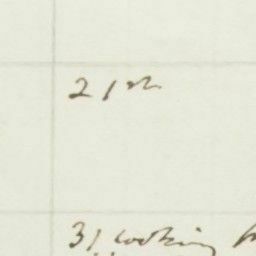 21st
31 cooking